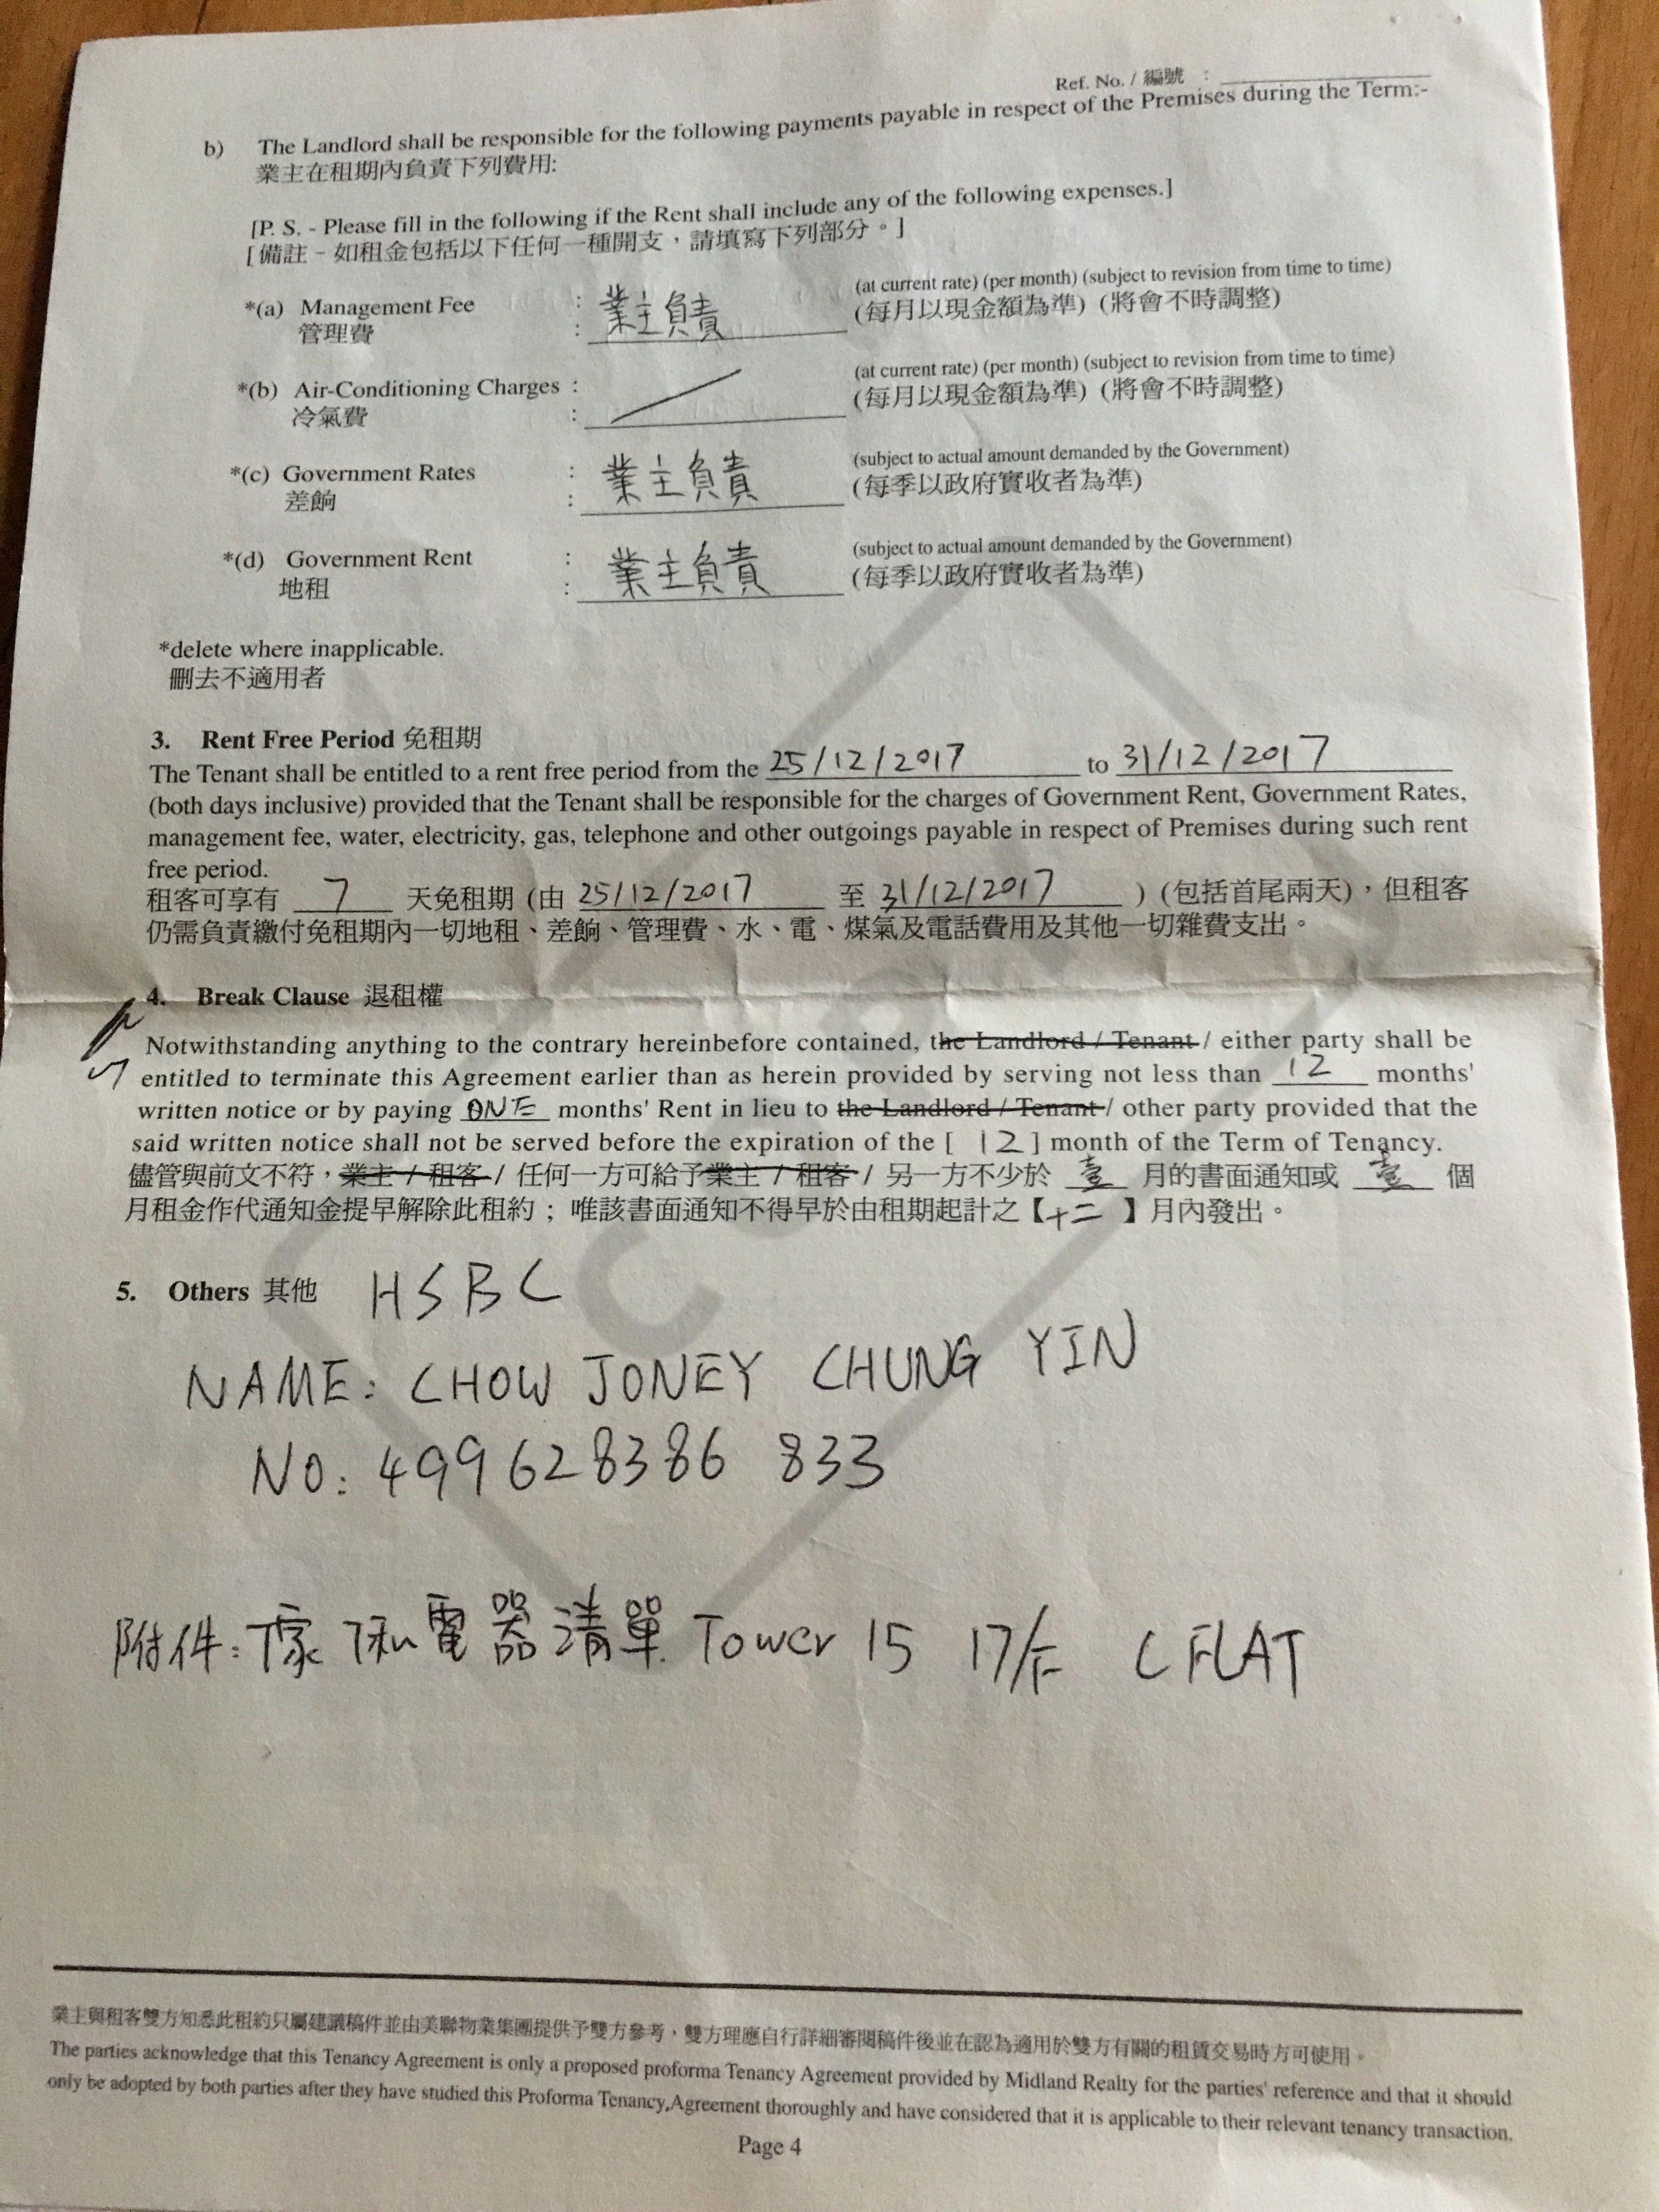 Ref. No. / 編號 :
b) The Landlord shall be responsible for the following payments payable in respect of the Premises during the Term:-
業主在租期內負責下列費用:
[P. S. - Please fill in the following if the Rent shall include any of the following expenses.]
[備註 - 如租金包括以下任何一種開支，請填寫下列部分。]
*(a) Management Fee : 業主負責 (at current rate) (per month) (subject to revision from time to time)
管理費 : (每月以現金額為準) (將會不時調整)
*(b) Air-Conditioning Charges : (at current rate) (per month) (subject to revision from time to time)
冷氣費 : (每月以現金額為準) (將會不時調整)
*(c) Government Rates : 業主負責 (subject to actual amount demanded by the Government)
差餉 : (每季以政府實收者為準)
*(d) Government Rent : 業主負責 (subject to actual amount demanded by the Government)
地租 : (每季以政府實收者為準)
*delete where inapplicable.
刪去不適用者
3. Rent Free Period 免租期
The Tenant shall be entitled to a rent free period from the 25/12/2017 to 31/12/2017
(both days inclusive) provided that the Tenant shall be responsible for the charges of Government Rent, Government Rates,
management fee, water, electricity, gas, telephone and other outgoings payable in respect of Premises during such rent
free period.
租客可享有 7 天免租期 (由 25/12/2017 至 31/12/2017 ) (包括首尾兩天)，但租客
仍需負責繳付免租期內一切地租、差餉、管理費、水、電、煤氣及電話費用及其他一切雜費支出。
4. Break Clause 退租權
Notwithstanding anything to the contrary hereinbefore contained, the Landlord / Tenant / either party shall be
entitled to terminate this Agreement earlier than as herein provided by serving not less than 12 months'
written notice or by paying ONE months' Rent in lieu to the Landlord / Tenant / other party provided that the
said written notice shall not be served before the expiration of the [ 12 ] month of the Term of Tenancy.
儘管與前文不符，業主 / 租客 / 任何一方可給予業主 / 租客 / 另一方不少於 壹 月的書面通知或 壹 個
月租金作代通知金提早解除此租約；唯該書面通知不得早於由租期起計之【十二】月內發出。
5. Others 其他 HSBC
NAME: CHOW JONEY CHUNG YIN
NO: 499628386 833
附件: 傢俬電器清單 Tower 15 17/F C FLAT
COPY
業主與租客雙方知悉此租約只屬建議稿件並由美聯物業集團提供予雙方參考，雙方理應自行詳細審閱稿件後並在認為適用於雙方有關的租賃交易時方可使用。
The parties acknowledge that this Tenancy Agreement is only a proposed proforma Tenancy Agreement provided by Midland Realty for the parties' reference and that it should
only be adopted by both parties after they have studied this Proforma Tenancy Agreement thoroughly and have considered that it is applicable to their relevant tenancy transaction.
Page 4